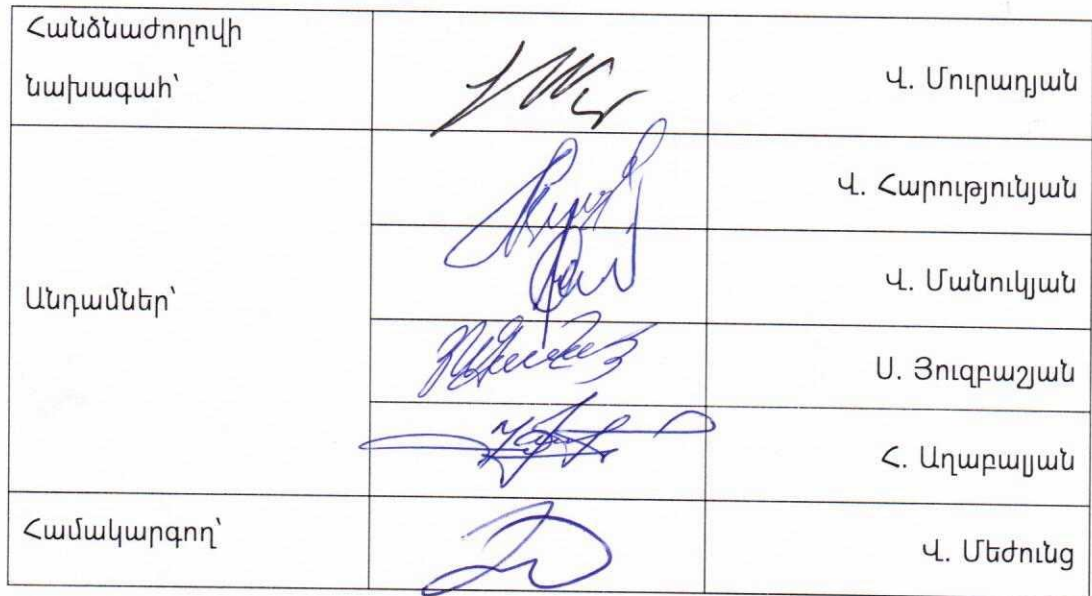 Հանձնաժողովի
նախագահ՝
Վ. Մուրադյան
Անդամներ՝
Վ. Հարությունյան
Վ. Մանուկյան
Ս. Յուզբաշյան
Հ. Աղաբալյան
Համակարգող՝
Վ. Մեժունց